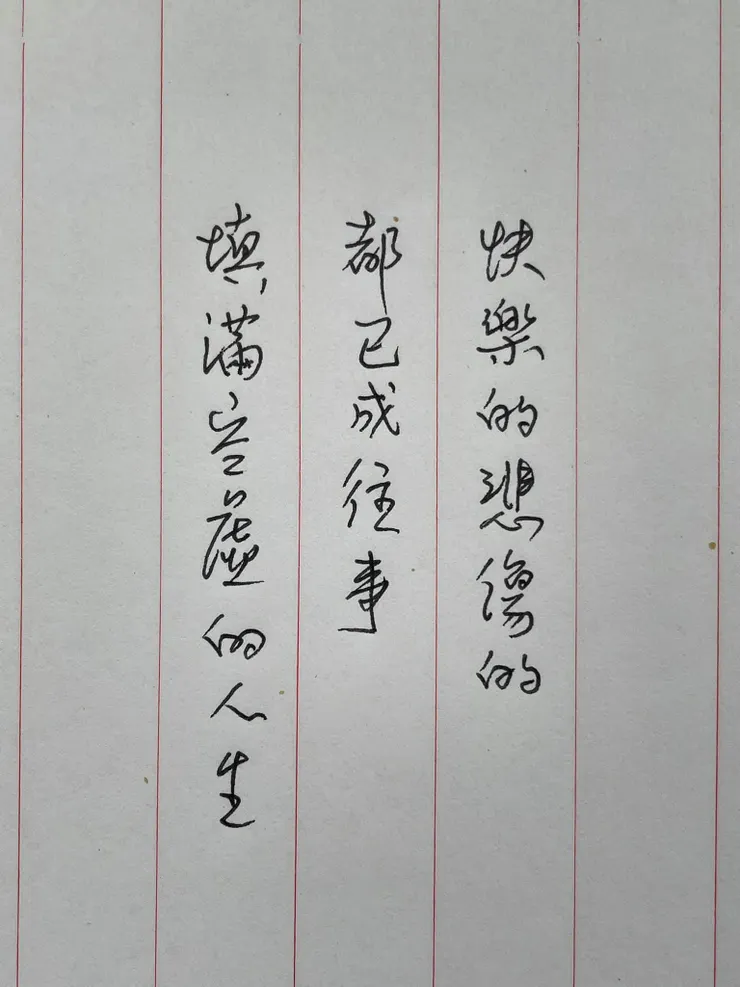 快樂的悲傷的
都已成往事
填滿空虛的人生